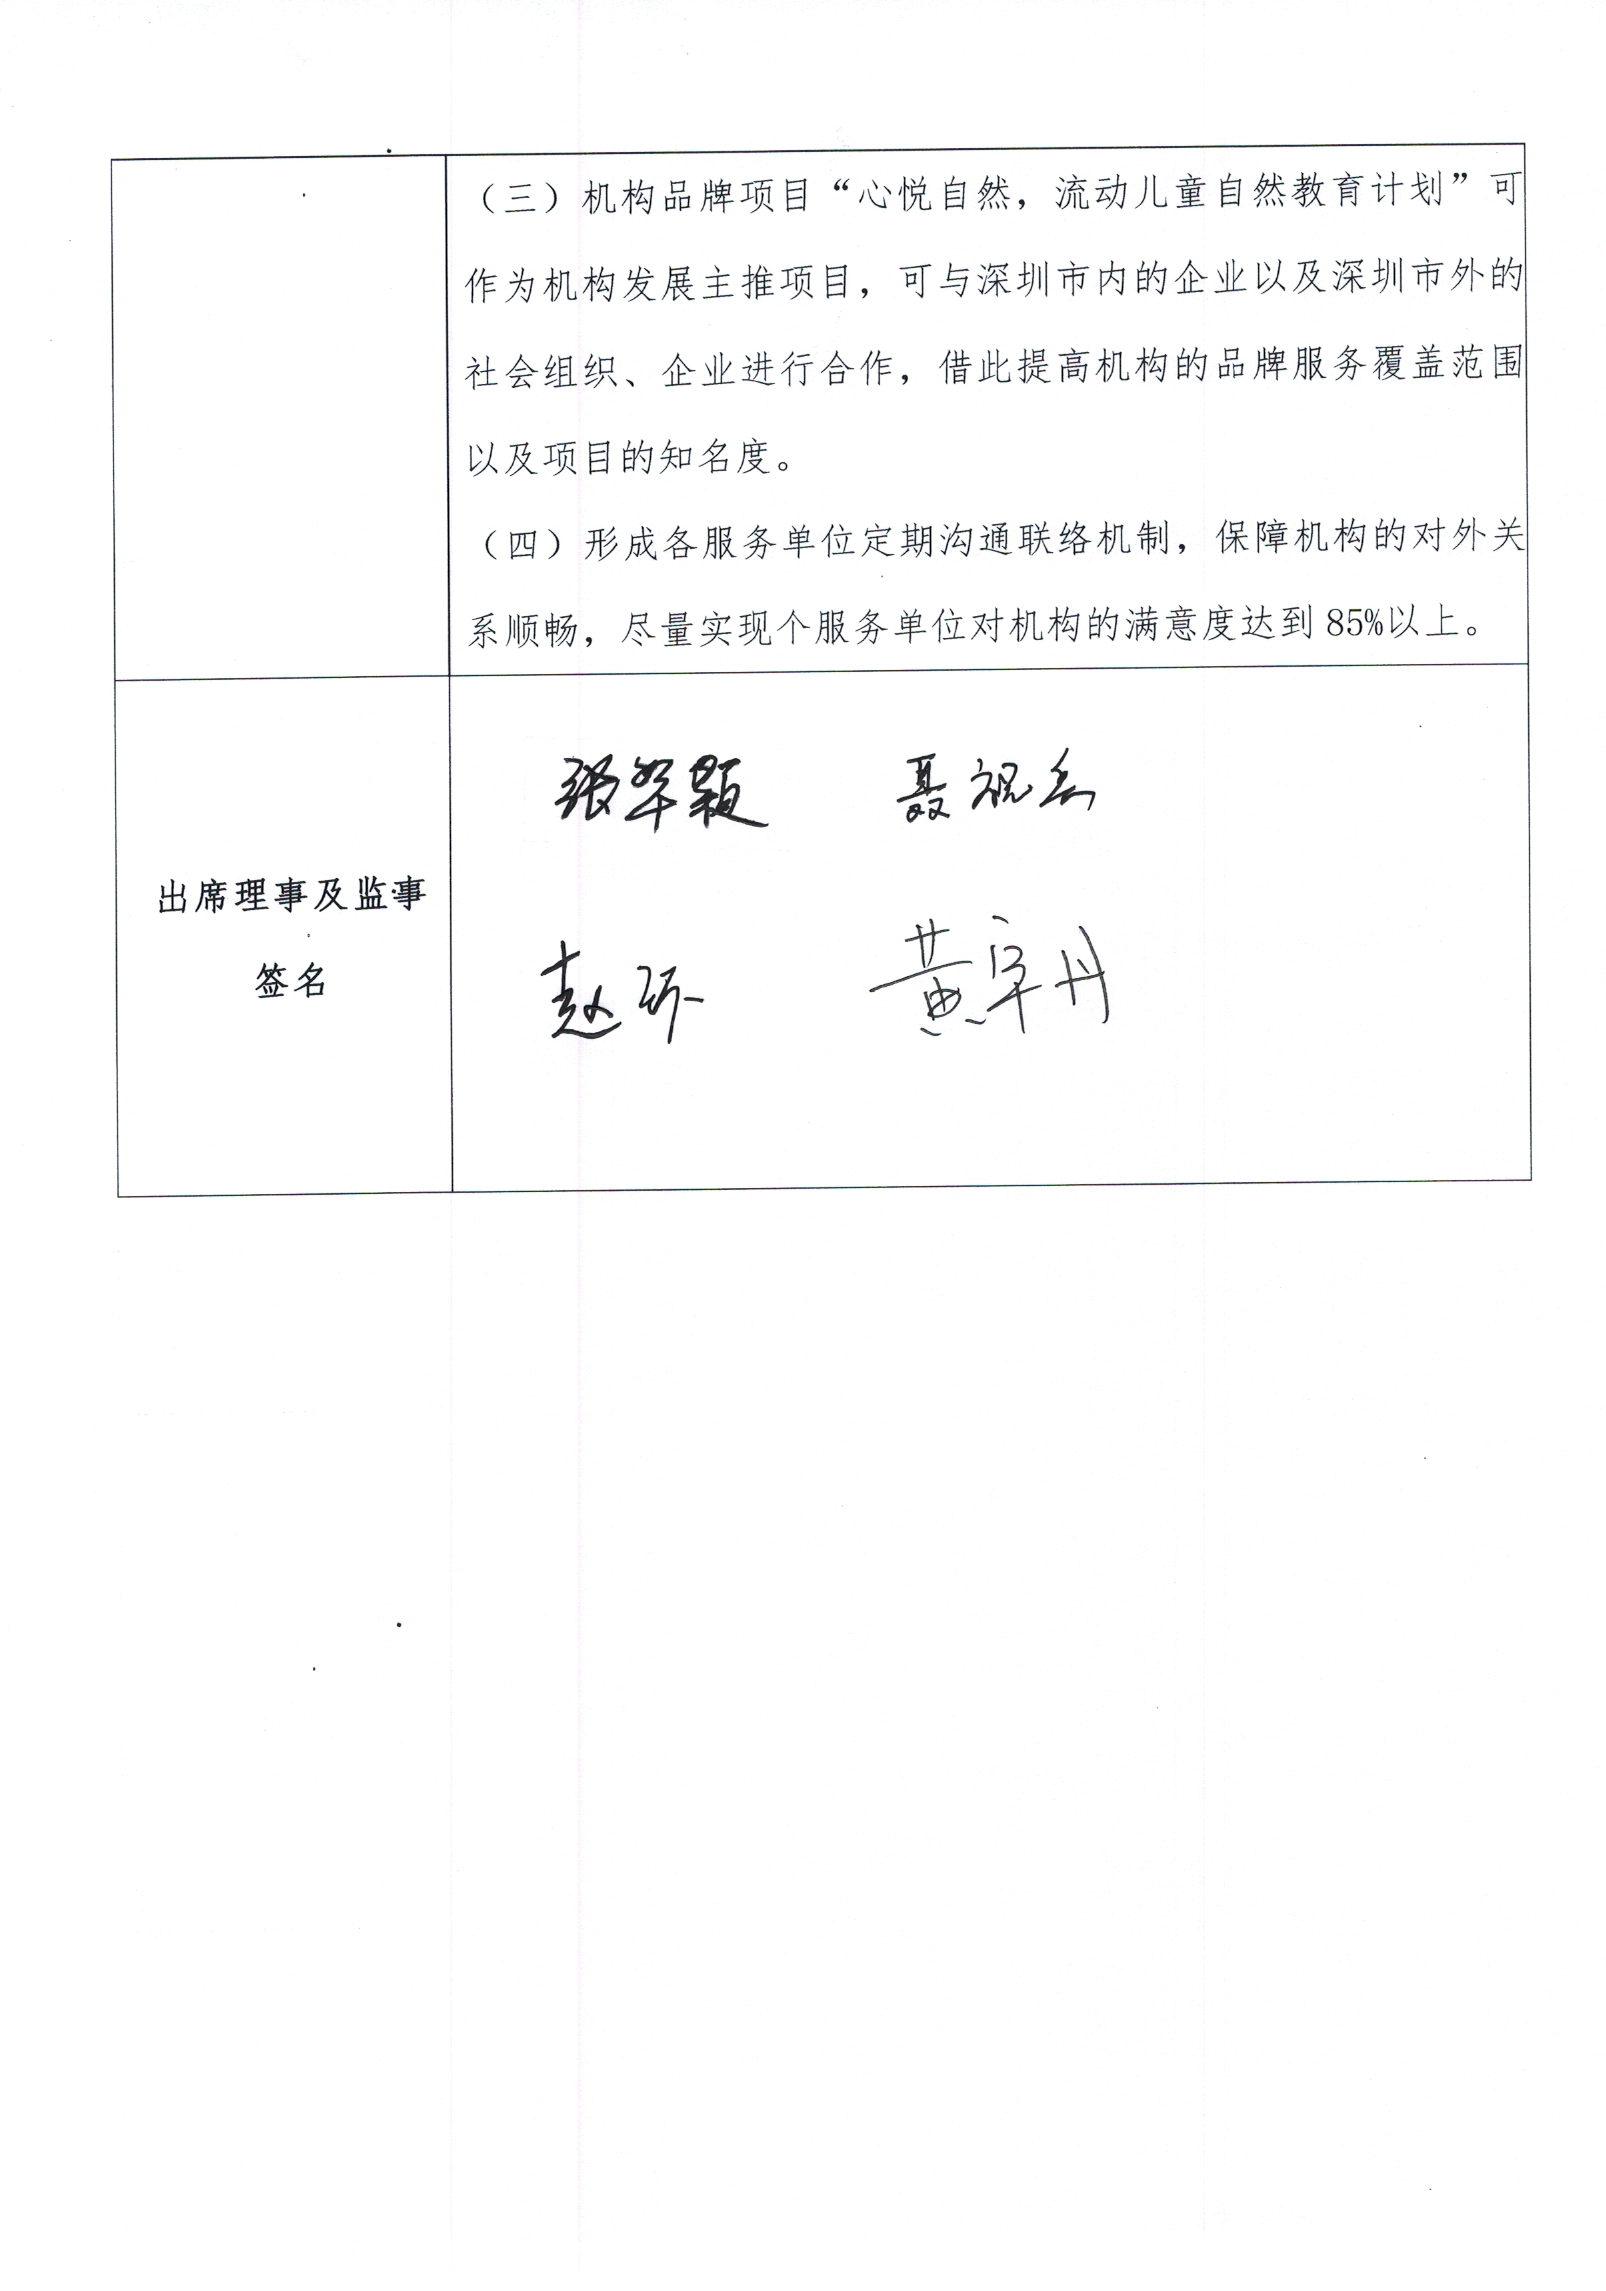 （三）机构品牌项目“心悦自然，流动儿童自然教育计划”可
作为机构发展主推项目，可与深圳市内的企业以及深圳市外的
社会组织、企业进行合作，借此提高机构的品牌服务覆盖范围
以及项目的知名度。
（四）形成各服务单位定期沟通联络机制，保障机构的对外关
系顺畅，尽量实现个服务单位对机构的满意度达到85%以上。
出席理事及监事
签名
张华颖 聂祝
赵 黄宇丹